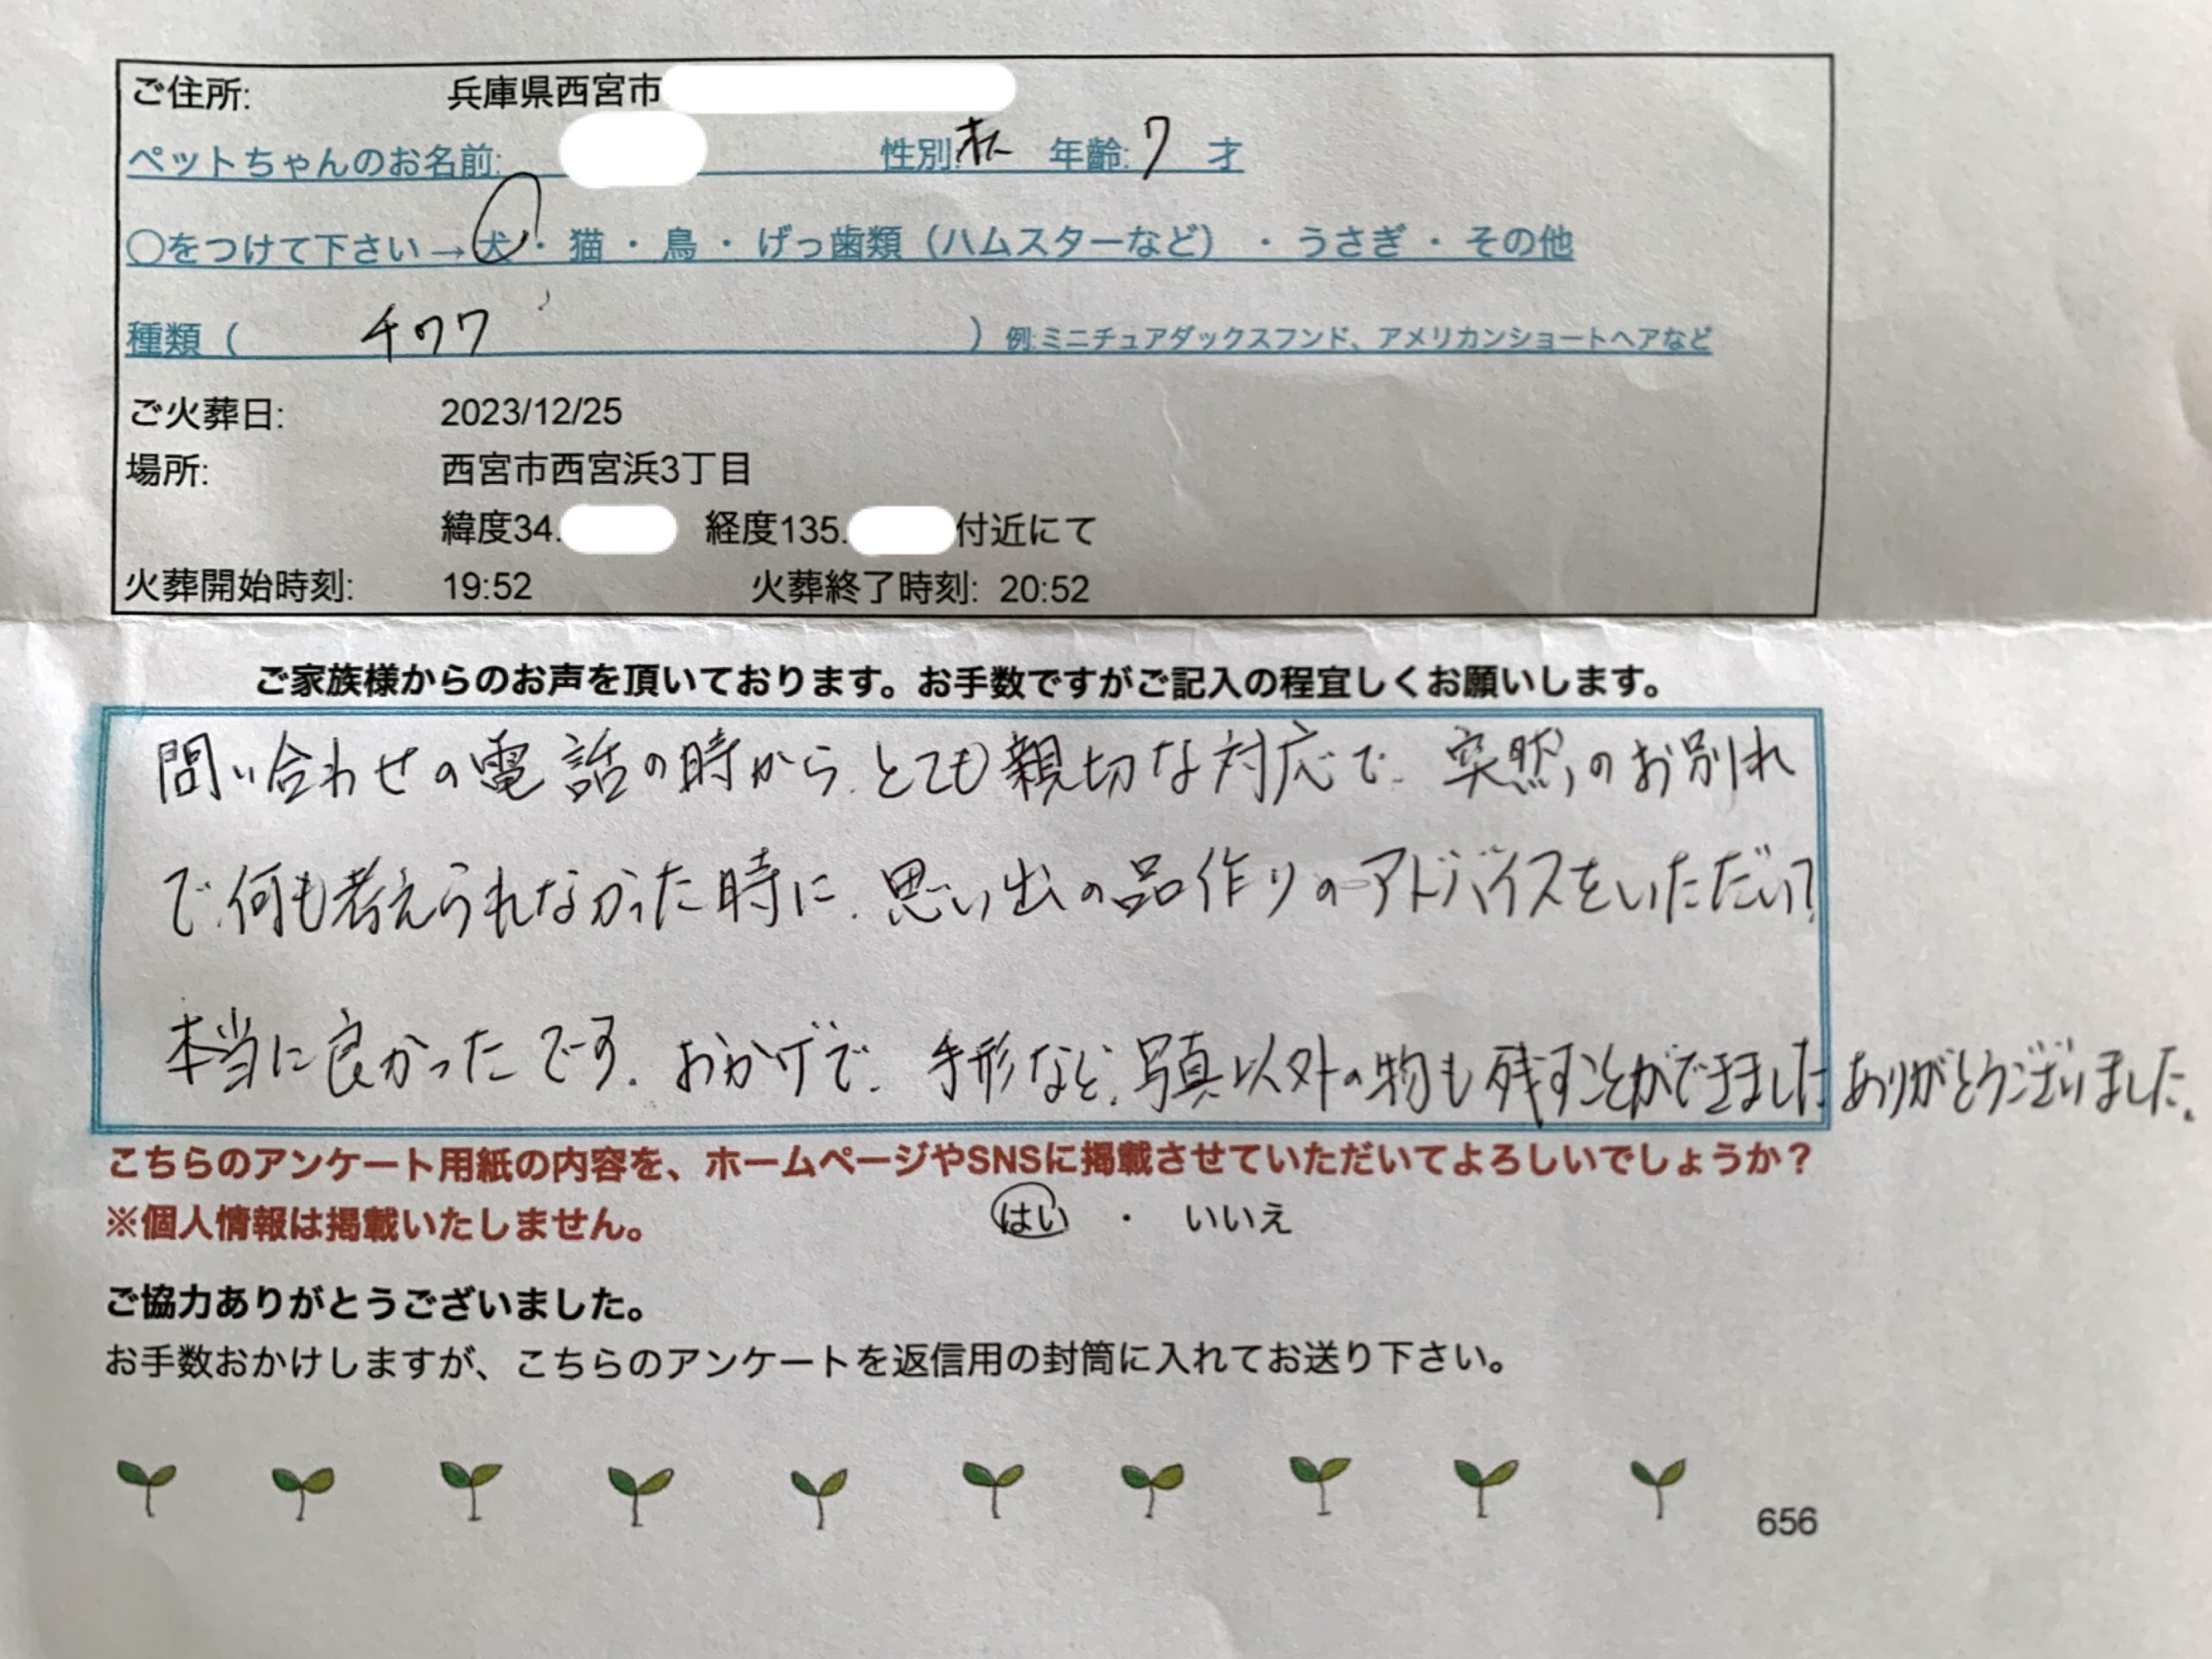 ご住所: 兵庫県西宮市
ペットちゃんのお名前: 性別:オス 年齢:7 才
〇をつけて下さい→犬・猫・鳥・げっ歯類（ハムスターなど）・うさぎ・その他
種類（ チワワ ）例:ミニチュアダックスフンド、アメリカンショートヘアなど
ご火葬日: 2023/12/25
場所: 西宮市西宮浜3丁目
緯度34. 経度135. 付近にて
火葬開始時刻: 19:52 火葬終了時刻: 20:52
ご家族様からのお声を頂いております。お手数ですがご記入の程宜しくお願いします。
問い合わせの電話の時から、とても親切な対応で、突然のお別れ
で、何も考えられなかった時に、思い出の品作りのアドバイスをいただいて
本当に良かったです。おかげで、手形など、写真以外の物も残すことができました ありがとうございました。
こちらのアンケート用紙の内容を、ホームページやSNSに掲載させていただいてよろしいでしょうか？
※個人情報は掲載いたしません。 はい ・ いいえ
ご協力ありがとうございました。
お手数おかけしますが、こちらのアンケートを返信用の封筒に入れてお送り下さい。
656